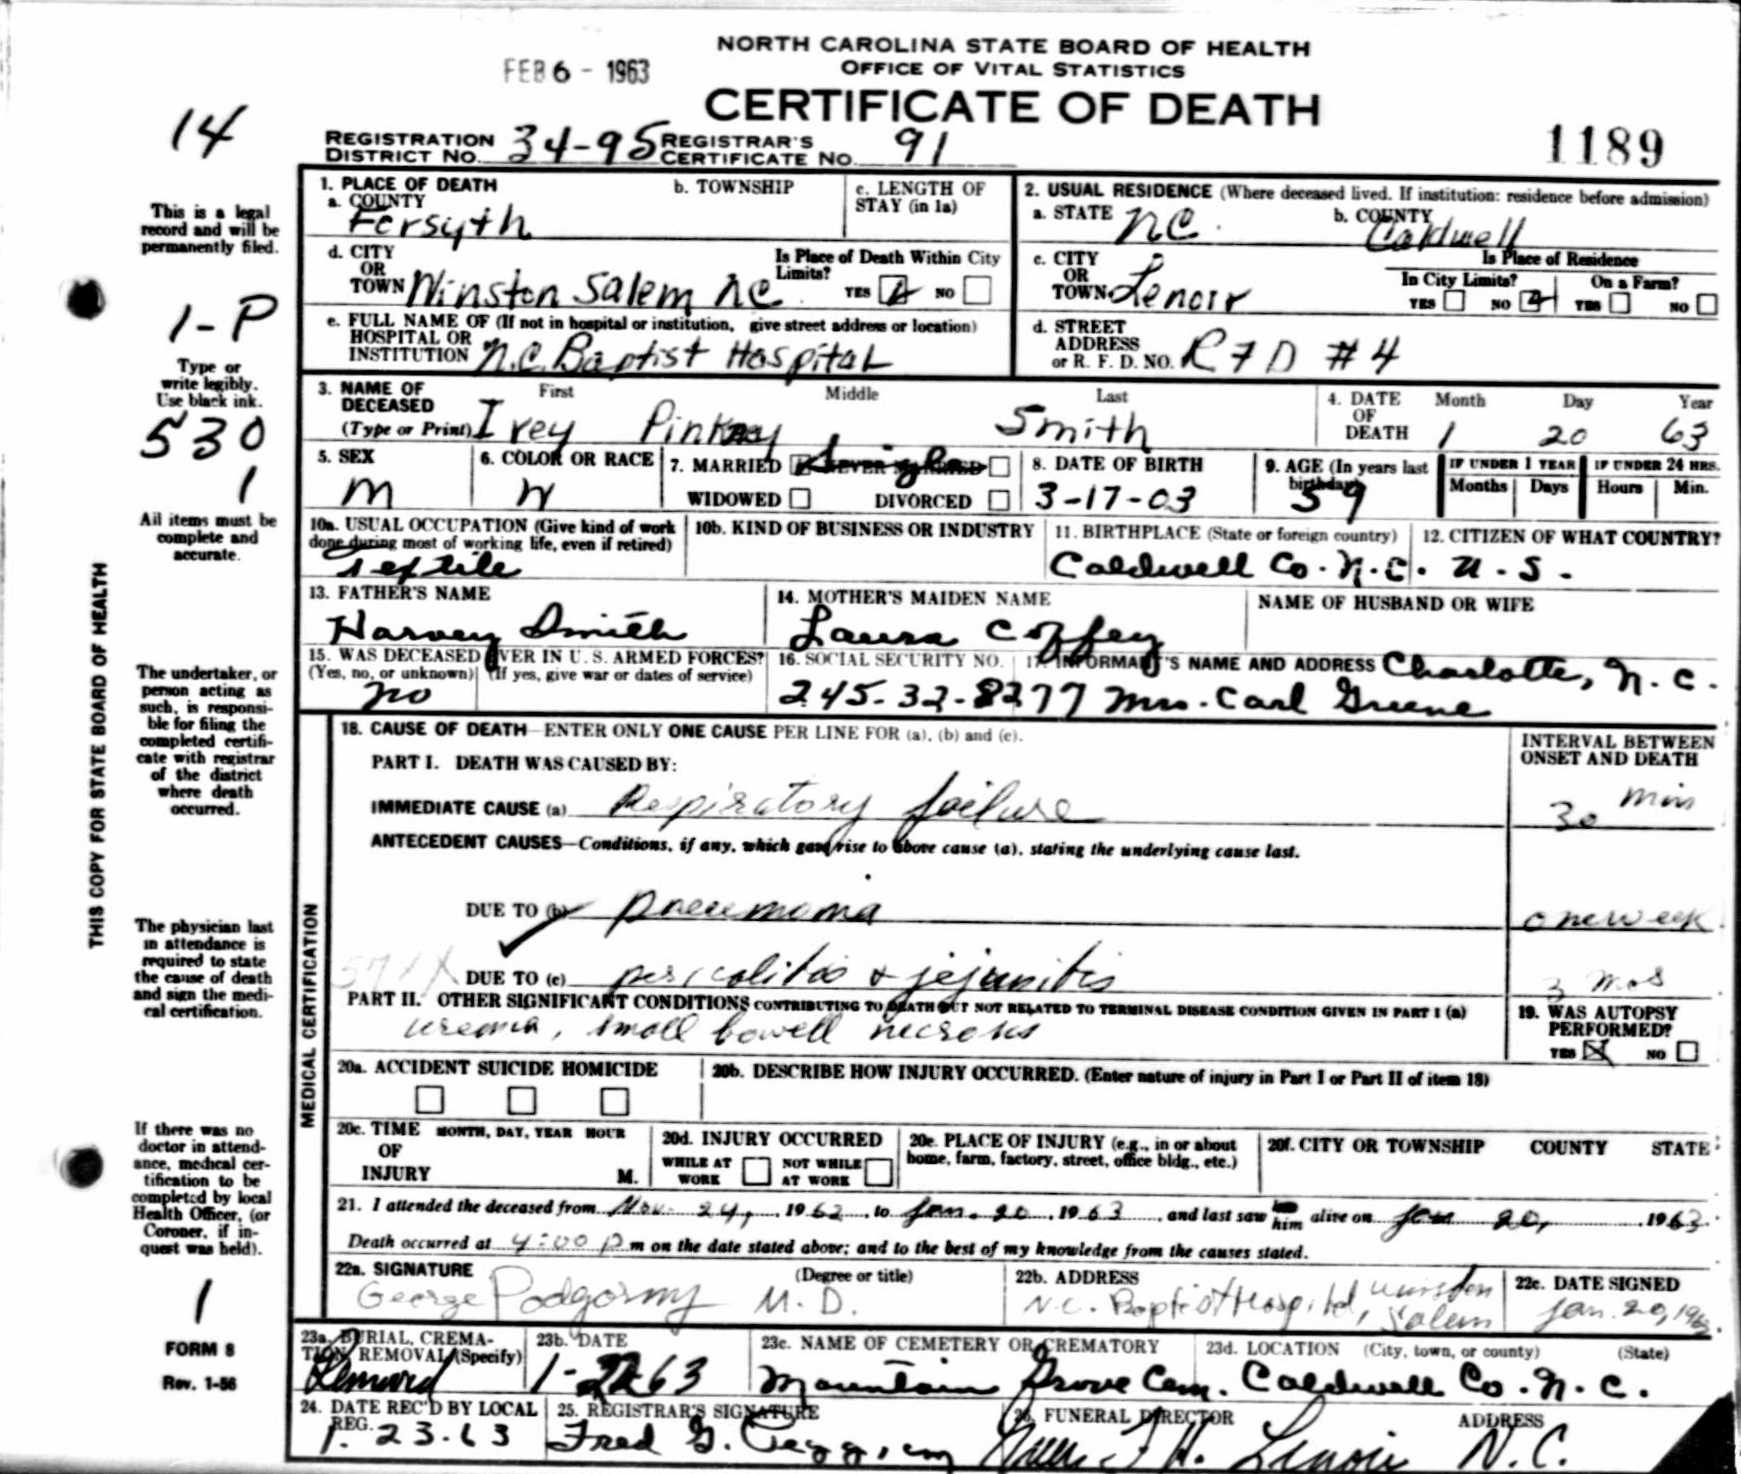 NORTH CAROLINA STATE BOARD OF HEALTH
OFFICE OF VITAL STATISTICS
FEB 6 - 1963
CERTIFICATE OF DEATH
14
REGISTRATION DISTRICT NO. 34-95 REGISTRAR'S CERTIFICATE NO. 91
1189
This is a legal record and will be permanently filed.
1-P
Type or write legibly. Use black ink.
530
1
All items must be complete and accurate.
THIS COPY FOR STATE BOARD OF HEALTH
The undertaker, or person acting as such, is responsible for filing the completed certificate with registrar of the district where death occurred.
The physician last in attendance is required to state the cause of death and sign the medical certification.
If there was no doctor in attendance, medical certification to be completed by local Health Officer, (or Coroner, if inquest was held).
1
FORM 8
Rev. 1-56
1. PLACE OF DEATH
a. COUNTY Forsyth
b. TOWNSHIP
c. LENGTH OF STAY (in 1a)
2. USUAL RESIDENCE (Where deceased lived. If institution: residence before admission)
a. STATE NC. b. COUNTY Caldwell
d. CITY OR TOWN Winston Salem NC
Is Place of Death Within City Limits? YES NO
c. CITY OR TOWN Lenoir
Is Place of Residence
In City Limits? YES NO On a Farm? YES NO
e. FULL NAME OF (If not in hospital or institution, give street address or location) HOSPITAL OR INSTITUTION N.C. Baptist Hospital
d. STREET ADDRESS or R. F. D. NO. RFD #4
3. NAME OF DECEASED (Type or Print) First Middle Last
Irey Pinkney Smith
4. DATE OF DEATH Month Day Year
1 20 63
5. SEX M
6. COLOR OR RACE W
7. MARRIED NEVER MARRIED Single
WIDOWED DIVORCED
8. DATE OF BIRTH 3-17-03
9. AGE (In years last birthday) 59
IF UNDER 1 YEAR Months Days
IF UNDER 24 HRS. Hours Min.
10a. USUAL OCCUPATION (Give kind of work done during most of working life, even if retired) Textile
10b. KIND OF BUSINESS OR INDUSTRY
11. BIRTHPLACE (State or foreign country) Caldwell Co. N.C.
12. CITIZEN OF WHAT COUNTRY? U.S.
13. FATHER'S NAME Harvey Smith
14. MOTHER'S MAIDEN NAME Laura Coffey
NAME OF HUSBAND OR WIFE
15. WAS DECEASED EVER IN U. S. ARMED FORCES? (Yes, no, or unknown) (If yes, give war or dates of service) no
16. SOCIAL SECURITY NO. 245-32-8277
17. INFORMANT'S NAME AND ADDRESS Charlotte, N.C.
Mrs. Carl Greene
MEDICAL CERTIFICATION
18. CAUSE OF DEATH—ENTER ONLY ONE CAUSE PER LINE FOR (a), (b) and (c).
INTERVAL BETWEEN ONSET AND DEATH
PART I. DEATH WAS CAUSED BY:
IMMEDIATE CAUSE (a) Respiratory failure 30 min
ANTECEDENT CAUSES—Conditions, if any, which gave rise to above cause (a), stating the underlying cause last.
DUE TO (b) pneumonia one week
DUE TO (c) pericolitis + jejunitis 3 mos
PART II. OTHER SIGNIFICANT CONDITIONS CONTRIBUTING TO DEATH BUT NOT RELATED TO TERMINAL DISEASE CONDITION GIVEN IN PART I (a)
uremia, small bowell necrosis
19. WAS AUTOPSY PERFORMED? YES NO
20a. ACCIDENT SUICIDE HOMICIDE
20b. DESCRIBE HOW INJURY OCCURRED. (Enter nature of injury in Part I or Part II of item 18)
20c. TIME OF INJURY MONTH, DAY, YEAR HOUR M.
20d. INJURY OCCURRED WHILE AT WORK NOT WHILE AT WORK
20e. PLACE OF INJURY (e.g., in or about home, farm, factory, street, office bldg., etc.)
20f. CITY OR TOWNSHIP COUNTY STATE
21. I attended the deceased from Nov. 24, 1962 to Jan. 20, 1963, and last saw him alive on Jan 20, 1963.
Death occurred at 4:00 P m on the date stated above; and to the best of my knowledge from the causes stated.
22a. SIGNATURE (Degree or title) George Podgorny M.D.
22b. ADDRESS N.C. Baptist Hospital, Winston Salem
22c. DATE SIGNED Jan. 20, 1963
23a. BURIAL, CREMATION, REMOVAL (Specify) Removal
23b. DATE 1-22-63
23c. NAME OF CEMETERY OR CREMATORY Mountain Grove Cem.
23d. LOCATION (City, town, or county) (State) Caldwell Co. N.C.
24. DATE REC'D BY LOCAL REG. 1.23.63
25. REGISTRAR'S SIGNATURE Fred G.
26. FUNERAL DIRECTOR ADDRESS
F.H. Lenoir N.C.